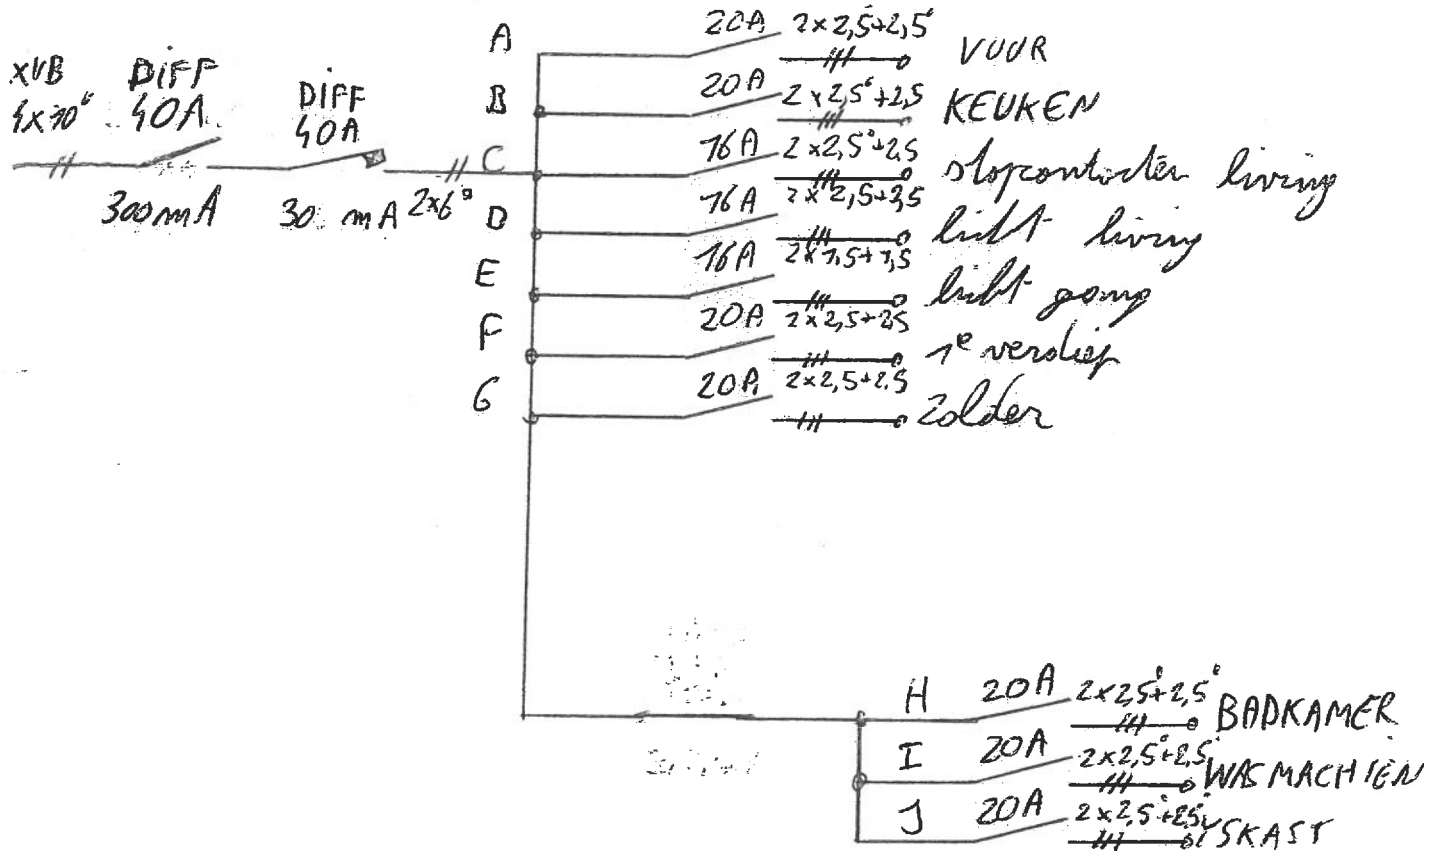 XVB
4x10°
DIFF
40A
300mA
DIFF
40A
30 mA
2x6°
A 20A 2x2,5+2,5° VUUR
B 20A 2x2,5°+2,5 KEUKEN
C 16A 2x2,5°+2,5 stopcontacten living
D 16A 2x2,5+2,5 licht living
E 16A 2x1,5+1,5 licht gang
F 20A 2x2,5+2,5 1e verdiep
G 20A 2x2,5+2,5 Zolder
H 20A 2x2,5°+2,5° BADKAMER
I 20A 2x2,5°+2,5 WASMACHIEN
J 20A 2x2,5°+2,5° YSKAST